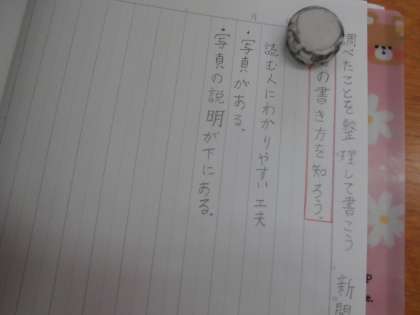 調べたことを整理して書こう
新聞
の書き方を知ろう。
読む人にわかりやすい工夫
・写真がある。
・写真の説明が下にある。